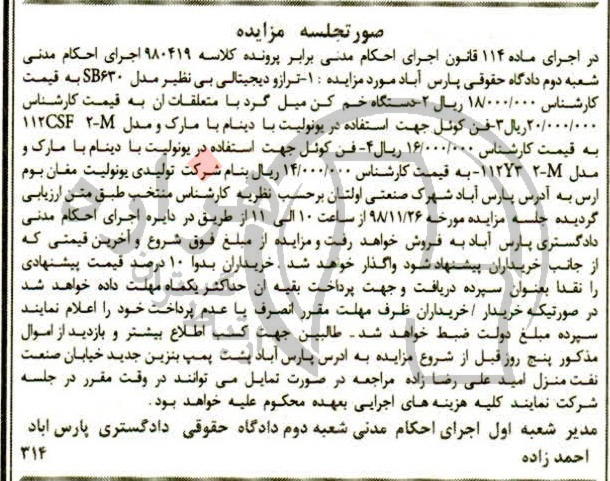 صورتجلسه مزایده
در اجرای ماده ۱۱۴ قانون اجرای احکام مدنی برابر پرونده کلاسه ۹۸۰۴۱۹ اجرای احکام مدنی
شعبه دوم دادگاه حقوقی پارس آباد مورد مزایده : ۱-ترازو دیجیتالی بی نظیر مدل SB۶۳۰ به قیمت
کارشناس ۱۸/۰۰۰/۰۰۰ ریال ۲-دستگاه خم کن میل گرد با متعلقات ان به قیمت کارشناس
۲۰/۰۰۰/۰۰۰ریال۳-فن کوئل جهت استفاده در یونولیت با دینام با مارک و مدل ۱۱۲CSF ۲-M
به قیمت کارشناس ۱۶/۰۰۰/۰۰۰ ریال۴- فن کوئل جهت استفاده در یونولیت با دینام با مارک و
مدل ۱۱۲Y۳ ۲-M-به قیمت کارشناس ۱۴/۰۰۰/۰۰۰ ریال بنام شرکت تولیدی یونولیت مغان بوم
ارس به آدرس پارس آباد شهرک صنعتی اولتان برحسب نظریه کارشناس منتخب طبق متن ارزیابی
گردیده جلسه مزایده مورخه ۹۸/۱۱/۲۶ از ساعت ۱۰ الی ۱۱ از طریق در دایره اجرای احکام مدنی
دادگستری پارس آباد به فروش خواهد رفت و مزایده از مبلغ فوق شروع و آخرین قیمتی که
از جانب خریداران پیشنهاد شود واگذار خواهد شد .خریداران بدوا ۱۰ درصد قیمت پیشنهادی
را نقدا بعنوان سپرده دریافت و جهت پرداخت بقیه ان حداکثر یکماه مهلت داده خواهد شد
در صورتیکه خریدار /خریداران ظرف مهلت مقرر انصرف یا عدم پرداخت خود را اعلام نمایند
سپرده مبلغ دولت ضبط خواهد شد . طالبین جهت کسب اطلاع بیشتر و بازدید از اموال
مذکور پنج روز قبل از شروع مزایده به ادرس پارس آباد پشت پمپ بنزین جدید خیابان صنعت
نفت منزل امید علی رضا زاده مراجعه در صورت تمایل می توانند در وقت مقرر در جلسه
شرکت نمایند کلیه هزینه های اجرایی بعهده محکوم علیه خواهد بود.
مدیر شعبه اول اجرای احکام مدنی شعبه دوم دادگاه حقوقی دادگستری پارس اباد
احمد زاده ۳۱۴